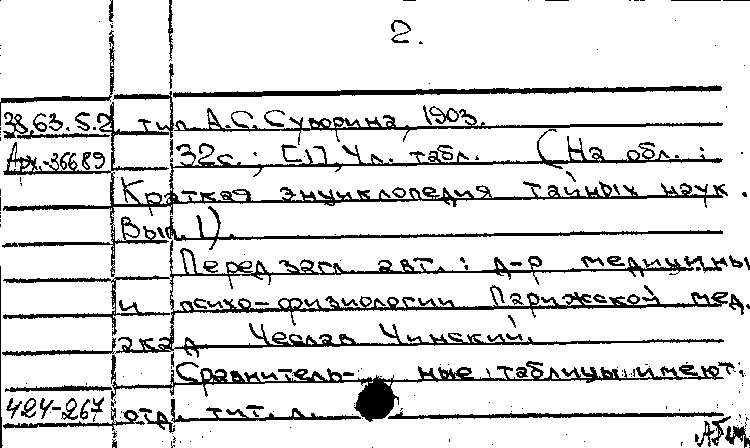 2.
38.63.5.2 тип. А.С. Суворина, 1903.
Арх.-36689 32с.; [1], 4 л. табл. (На обл.:
Краткая энциклопедия тайных наук.
Вып. 1).
Перед загл. авт.: д-р медицины
и психо-физиологии Парижской мед.
акад Чеслав Чинский.
Сравнитель- ные таблицы имеют
424-267 отд. тит. л.